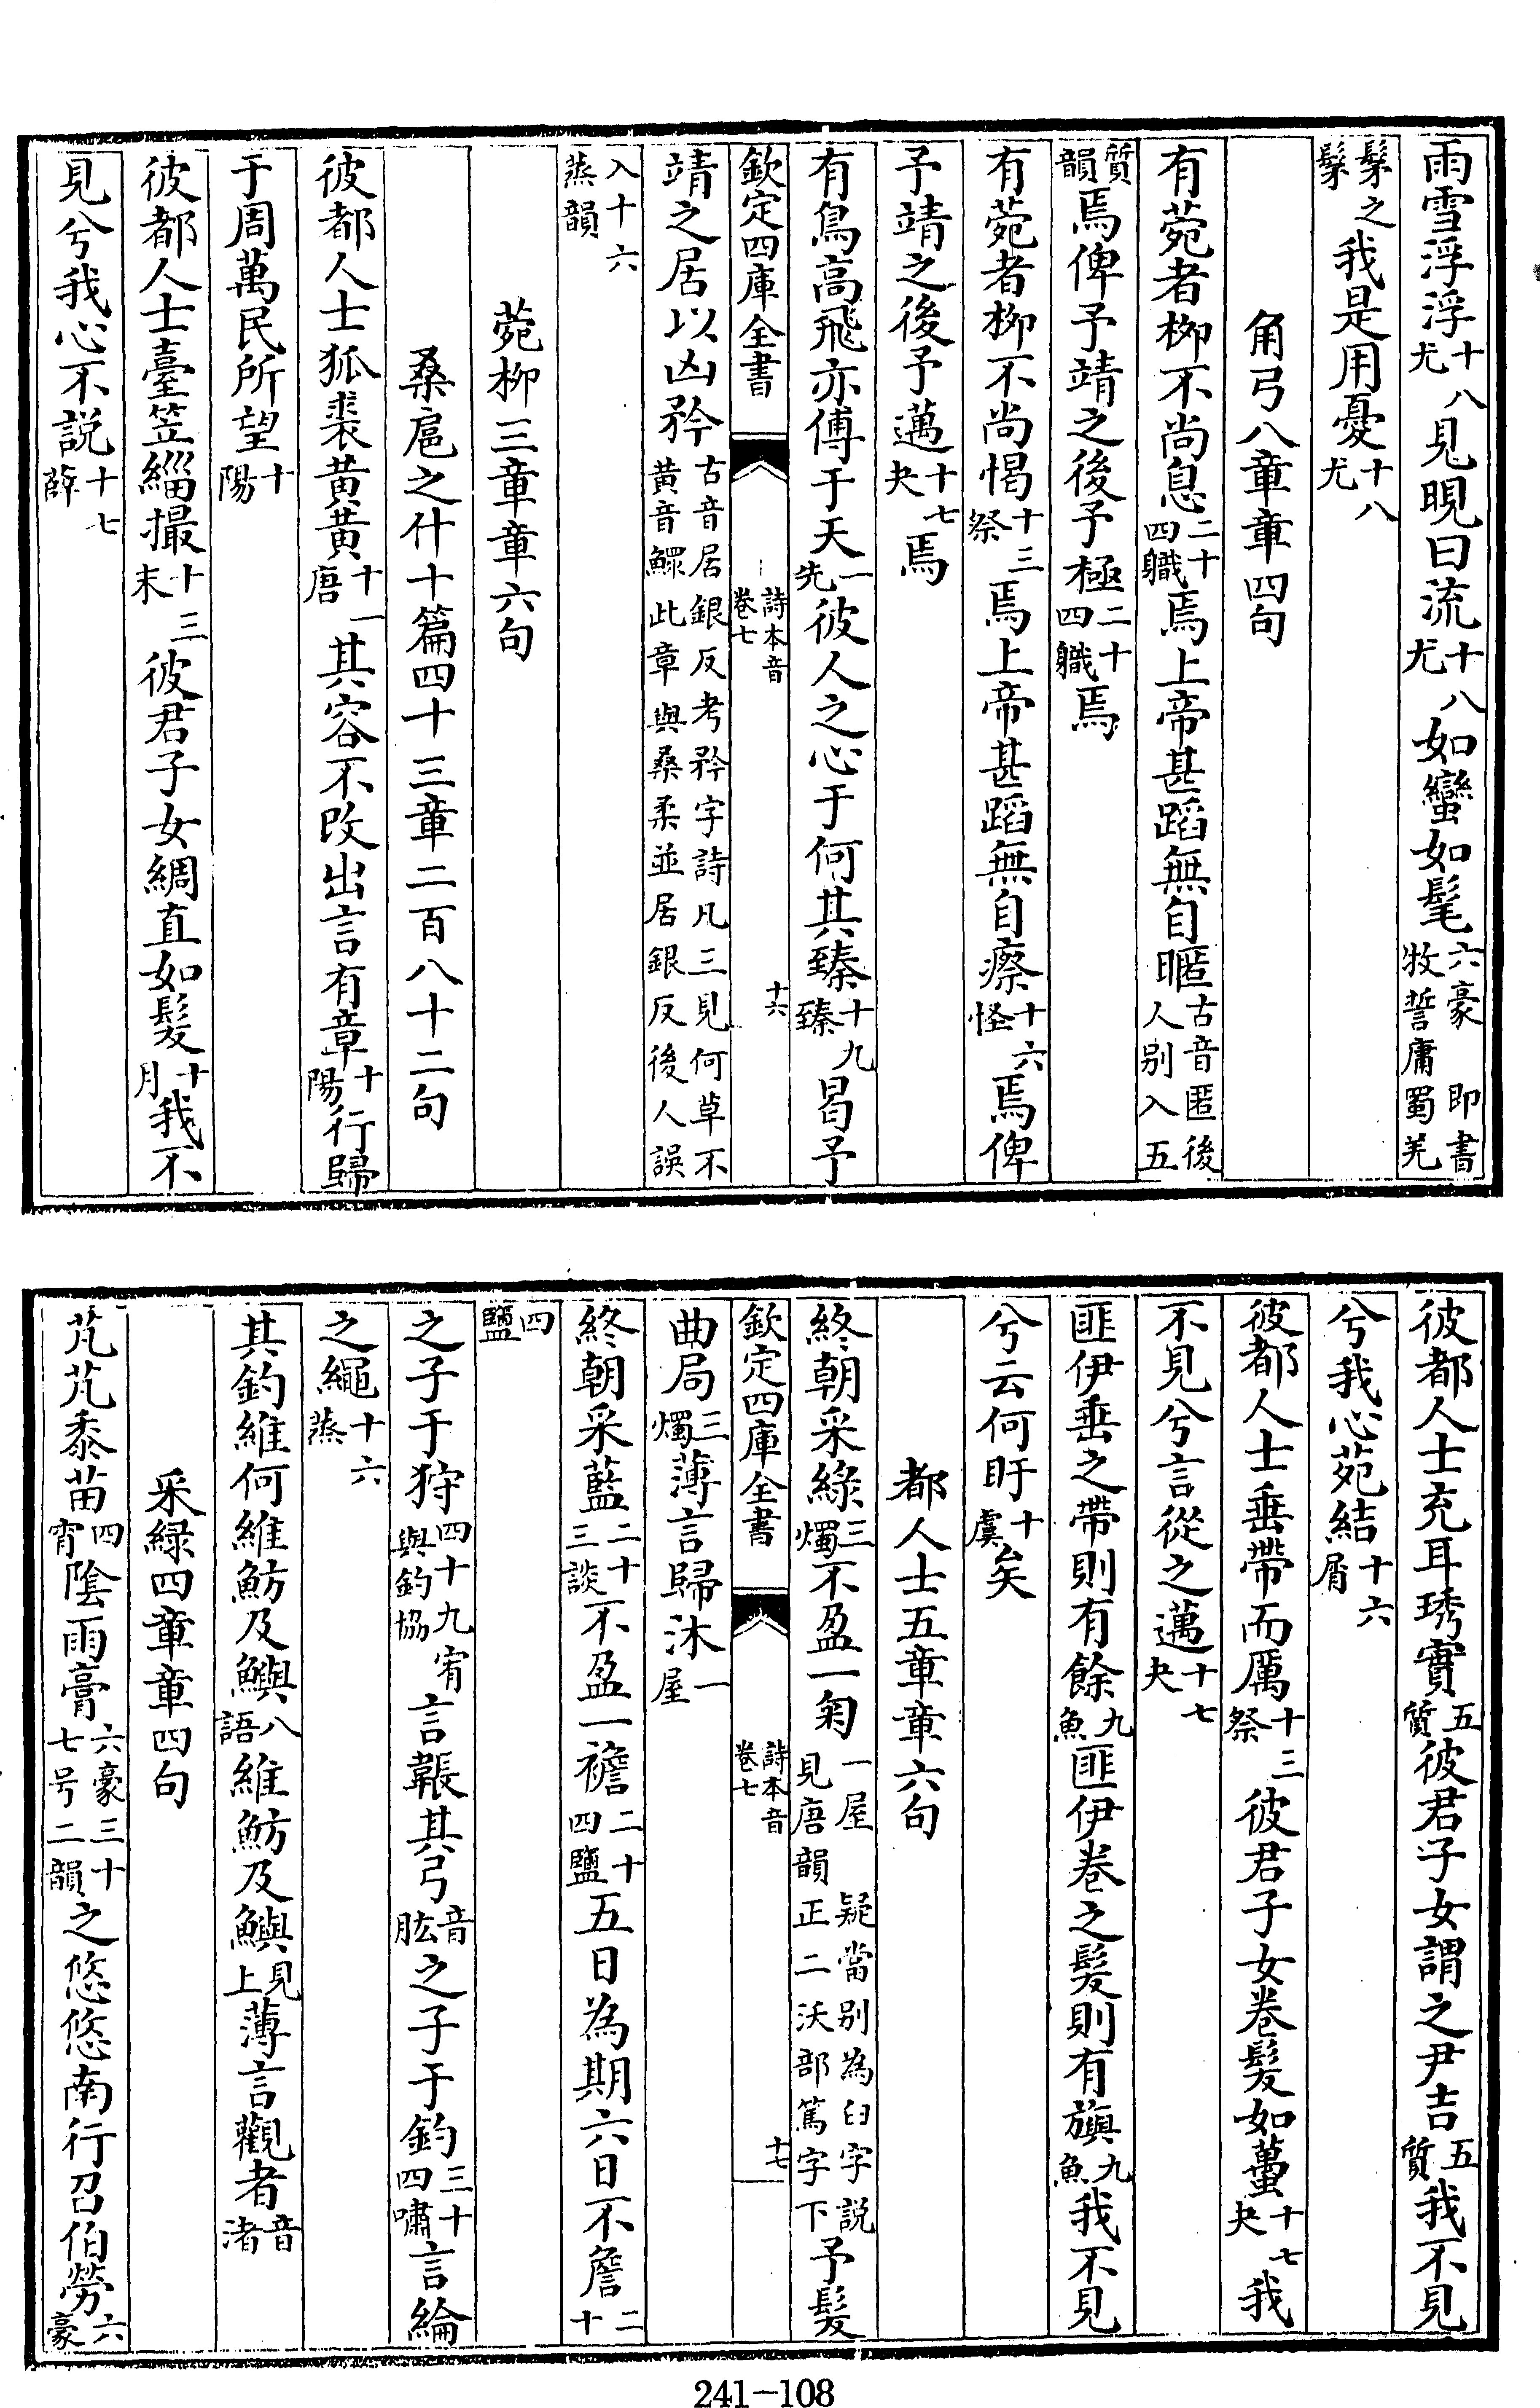 雨雪浮浮十八尤見晛曰流十八尤如蠻如髦六豪 即書牧誓庸蜀羌
髳之髳我是用憂十八尤
角弓八章章四句
有菀者栁不尚息二十四職焉上帝甚蹈無自暱古音匿後人别入五
質韻焉俾予靖之後予極二十四職焉
有菀者栁不尚愒十三祭焉上帝甚蹈無自瘵十六怪焉俾
予靖之後予邁十七夬焉
有鳥高飛亦傅于天一先彼人之心于何其臻十九臻曷予
欽定四庫全書 詩本音卷七 十六
靖之居以凶矜古音居銀反考矜字詩凡三見何草不黄音鰥此章與桑柔並居銀反後人誤
入十六蒸韻
菀栁三章章六句
桑扈之什十篇四十三章二百八十二句
彼都人士狐裘黄黄十一唐其容不改出言有章十陽行歸
于周萬民所望十陽
彼都人士臺笠緇撮十三末彼君子女綢直如髮十月我不
見兮我心不説十七薛
彼都人士充耳琇實五質彼君子女謂之尹吉五質我不見
兮我心苑結十六屑
彼都人士垂帶而厲十三祭彼君子女卷髮如蠆十七夬我
不見兮言從之邁十七夬
匪伊垂之帶則有餘九魚匪伊卷之髮則有旟九魚我不見
兮云何盱十虞矣
都人士五章章六句
終朝采綠三燭不盈一匊一屋 疑當别為臼字説見唐韻正二沃部篤字下予髮
欽定四庫全書 詩本音卷七 十七
曲局三燭薄言歸沐一屋
終朝采藍二十三談不盈一襜二十四鹽五日為期六日不詹二十
四鹽
之子于狩四十九宥與釣協言韔其弓音肱之子于釣三十四嘯言綸
之繩十六蒸
其釣維何維魴及鱮八語維魴及鱮見上薄言觀者音渚
采緑四章章四句
芃芃黍苗四宵陰雨膏六豪三十七号二韻之悠悠南行召伯勞六豪
241—108